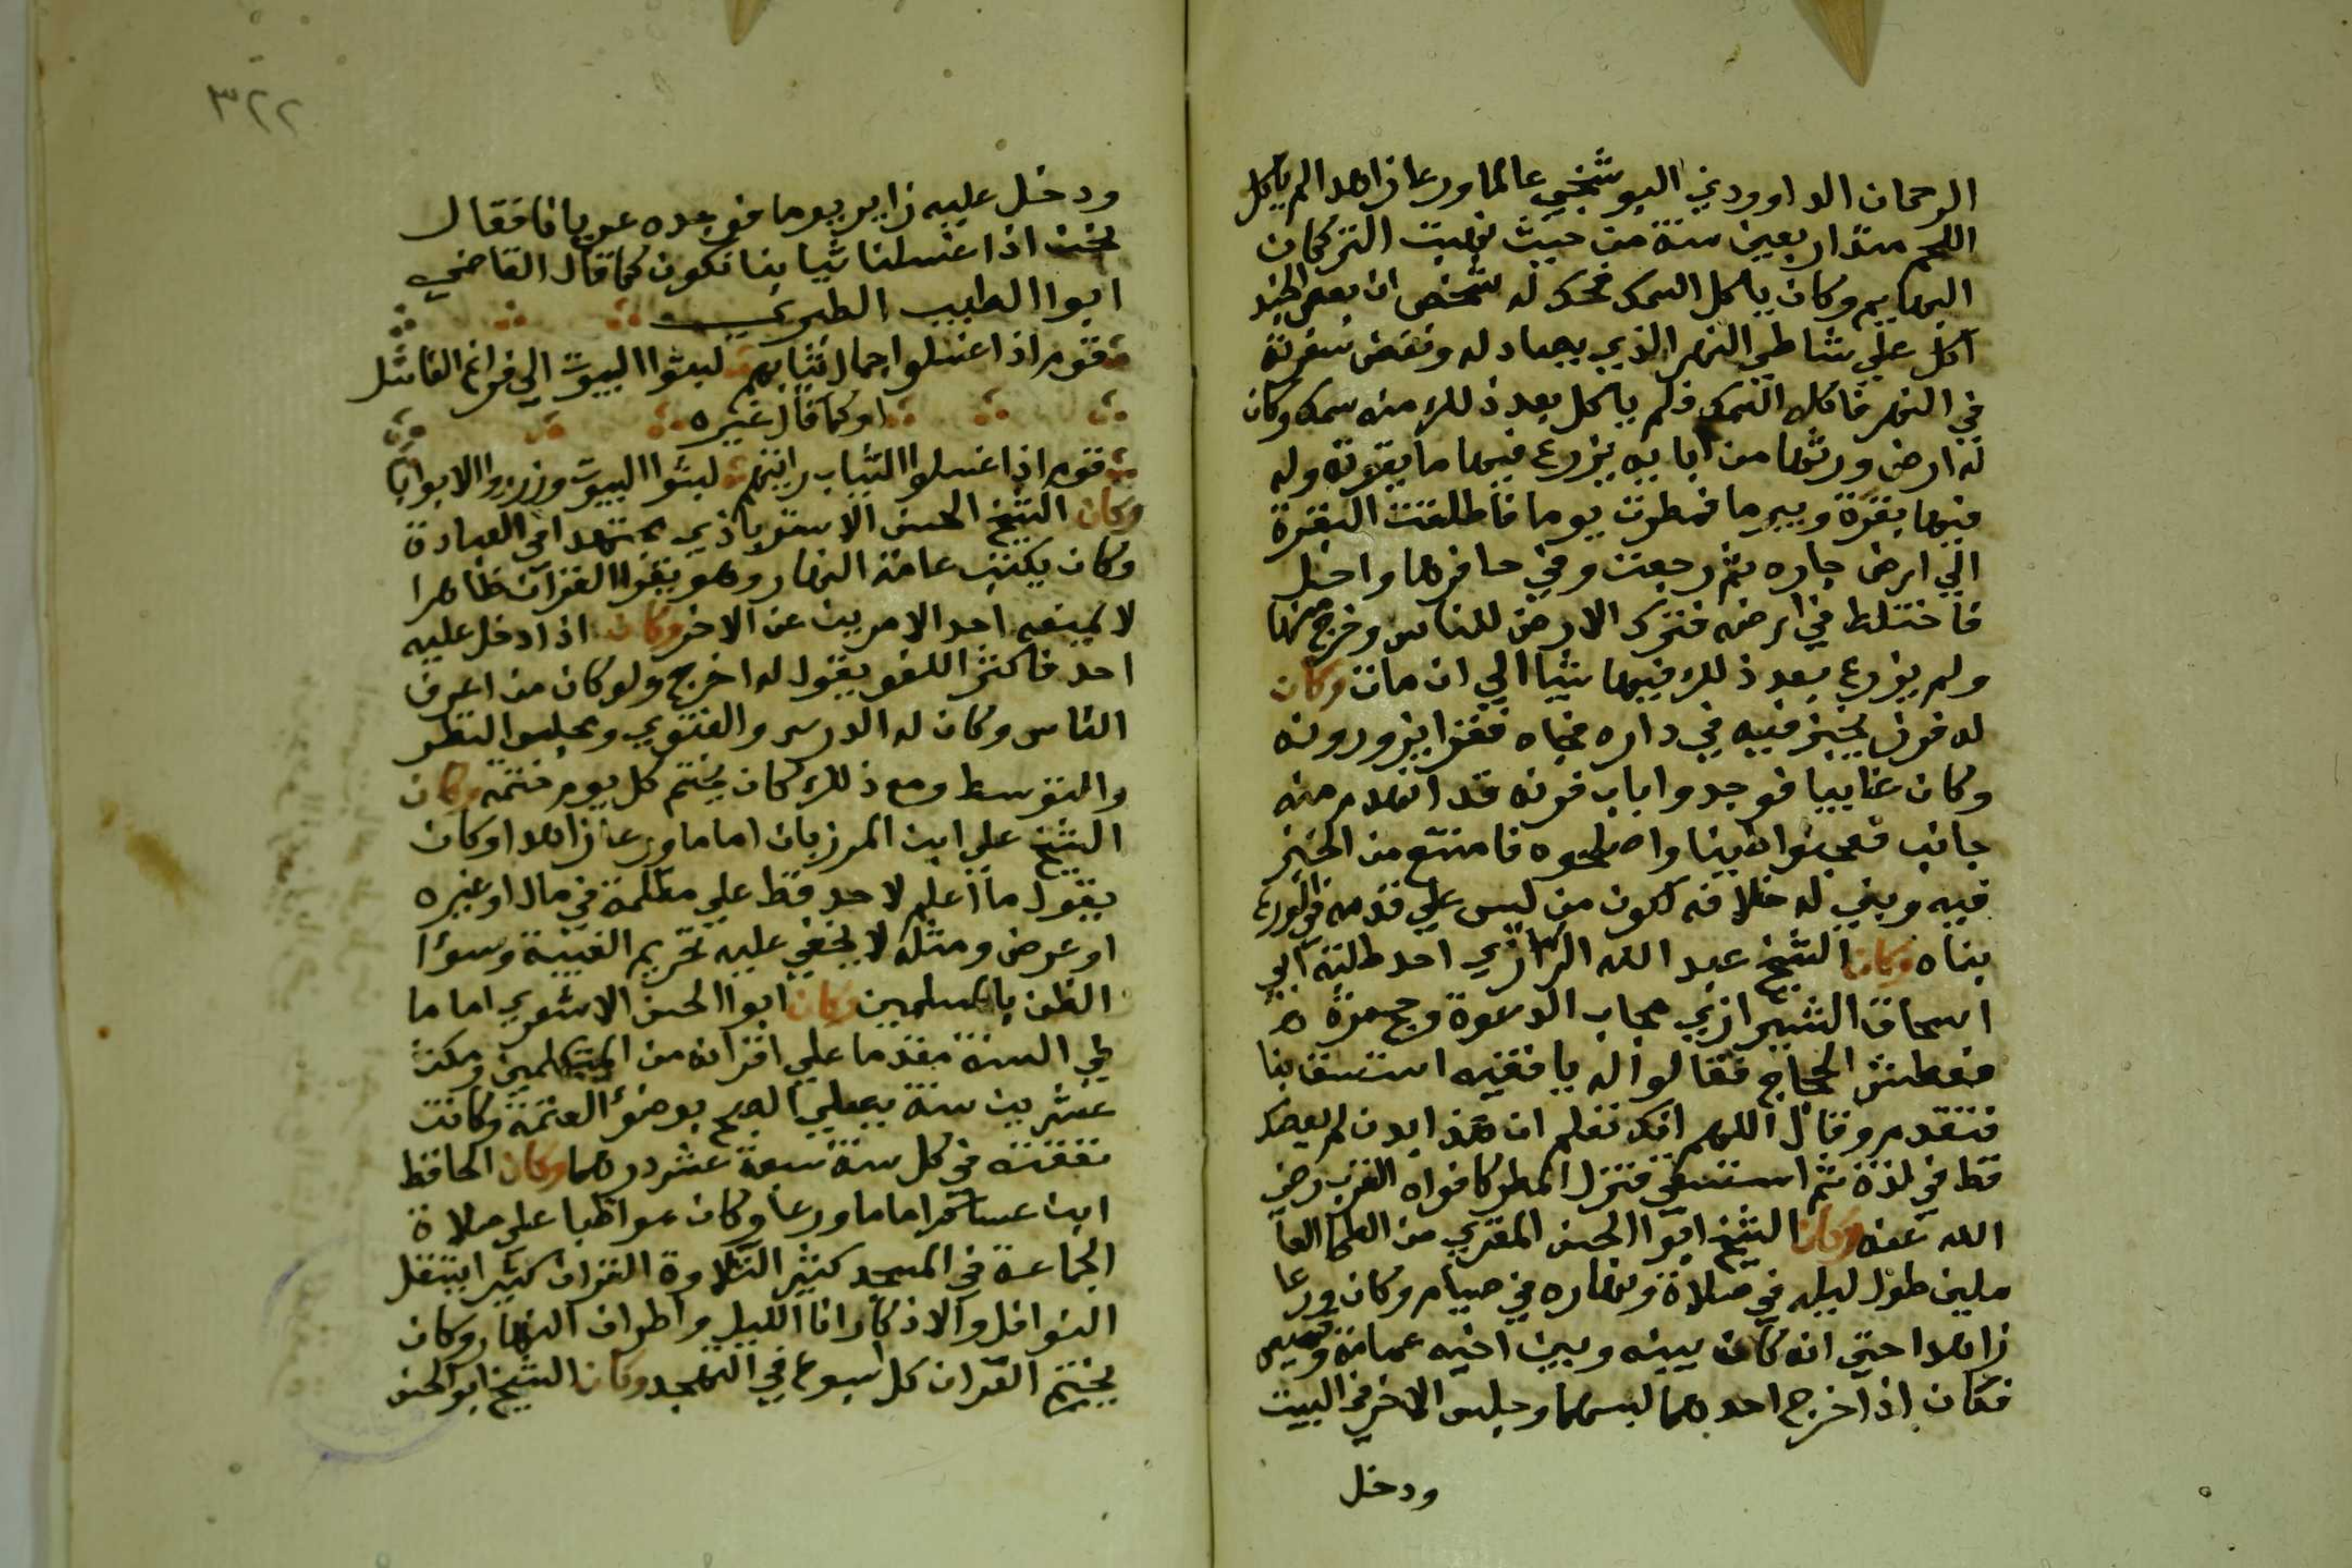 الرحمان الداوودي البوشنجي عالما ورعا زاهدا لم ياكل
اللحم منذ اربعين سنة من حيث نهبت التركمان
البهايم وكان ياكل السمك فحكى له شخص ان بعض الجند
اكل علي شاطي النهر الذي يصاد له ونفض سفرته
في النهر فاكله السمك فلم ياكل بعد ذلك منه سمك وكان
له ارض ورثها من ابايه يزرع فيها ما يقوته وله
فيها بقرة وبير ما فمطرت يوما فاطلقت البقرة
الي ارض جاره ثم رجعت وفي حافرها واحل
فاختلط في ارضه فترك الارض للناس وخرج منها
ولم يزرع بعد ذلك فيها شيا الي ان مات وكان
له فرن يخبز فيه في داره فجاه فقرا يزورونه
وكان غايبا فوجدوا باب فرنه قد انهدم منه
جانب فعجنوا طينا واصلحوه فامتنع من الخبز
فيه وبني له خلافه لكون من ليس علي قدمه في الورع
بناه وكان الشيخ عبد الله الرازي احد طلبة ابي
اسحاق الشيرازي مجاب الدعوة وحج مرة
فعطش الحجاج فقالوا له يا فقيه استسق بنا
فتقدم وقال اللهم انك تعلم ان هذا بدن لم يعصك
قط في لذة ثم استسقي فنزل المطر كافواه القرب رضي
الله عنه وكان الشيخ ابوا الحسن المقري من العلما العا
ملين طول ليله في صلاة ونهاره في صيام وكان ورعا
زاهدا حتي انه كان بينه وبين اخيه عمامة وقميص
فكان اذا خرج احدهما لبسهما وجلس الاخر في البيت
ودخل
٣٢٢
ودخل عليه زاير يوما فوجده عريانا فقال
نحن اذا غسلنا ثيابنا نكون كما قال القاضي
ابوا الطيب الطبري
قوم اذا غسلوا جمال ثيابهم لبسوا البيوت الي فراغ الغاسل
او كما قال غيره
قوم اذا غسلوا الثياب رايتهم لبسوا البيوت وزرروا الابوابا
وكان الشيخ الحسن الاستراباذي مجتهدا في العبادة
وكان يكتب عامة النهار وهو يقرا القران ظاهرا
لا يمنعه احد الامرين عن الاخر وكان اذا دخل عليه
احد فاكثر اللغو يقول له اخرج ولو كان من اعرف
الناس وكان له الدرس والفتوي ومجلس النظر
والتوسط ومع ذلك كان يختم كل يوم ختمه وكان
الشيخ علي ابن المرزبان اماما ورعا زاهدا وكان
يقول ما اعلم لاحد قط علي مظلمة في مال او غيره
او عرض ومثله لا يخفي عليه تحريم الغيبة وسوءا
الظن بالمسلمين وكان ابوا الحسن الاشعري اماما
في السنة مقدما علي اقرانه من المتكلمين ومكث
عشرين سنة يصلي الصبح بوضوء العتمة وكانت
نفقته في كل سنة سبعة عشر درهما وكان الحافظ
ابن عساكر اماما ورعا وكان مواظبا علي صلاة
الجماعة في المسجد كثير التلاوة القران كثير ايتنفل
النوافل والاذكار انا الليل واطراف النهار وكان
يختم القران كل اسبوع في التهجد وكان الشيخ ابو الحسن